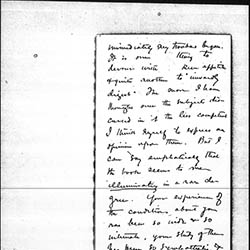 immediately my troubles began.
It is one thing to
devour with keen appetite
& quite another to "inwardly
digest". The more I have
thought over the subject dis-
cussed in it the less competent
I think myself to express an
opinion upon them. But I
can say emphatically that
the book seems to me
illuminating in a rare de-
gree. Your experience of
the conditions about you
has been so wide & so
intimate, your study of them
has been so &